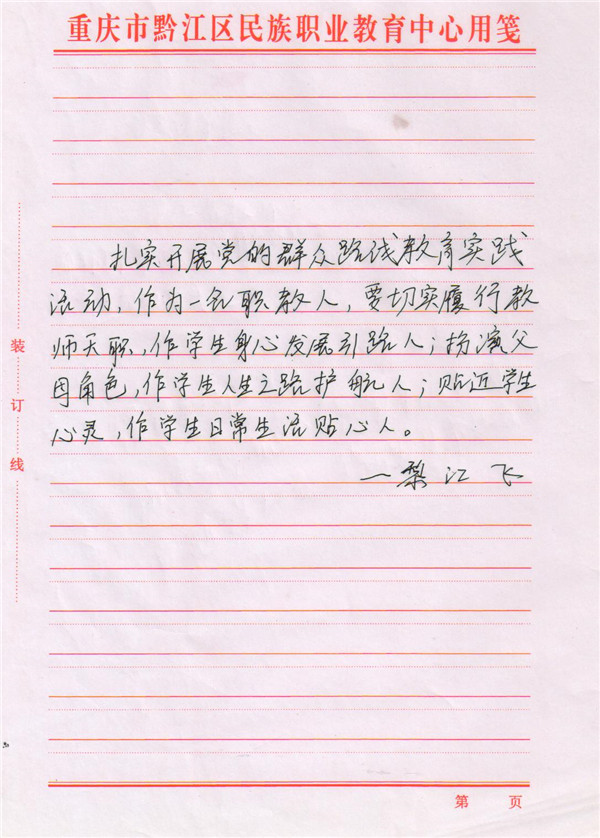 重庆市黔江区民族职业教育中心用笺
扎实开展党的群众路线教育实践
活动，作为一名职教人，要切实履行教
师天职，作学生身心发展引路人；扮演父
母角色，作学生人生之路护航人；贴近学生
心灵，作学生日常生活贴心人。
—梨江飞
装
订
线
第 页